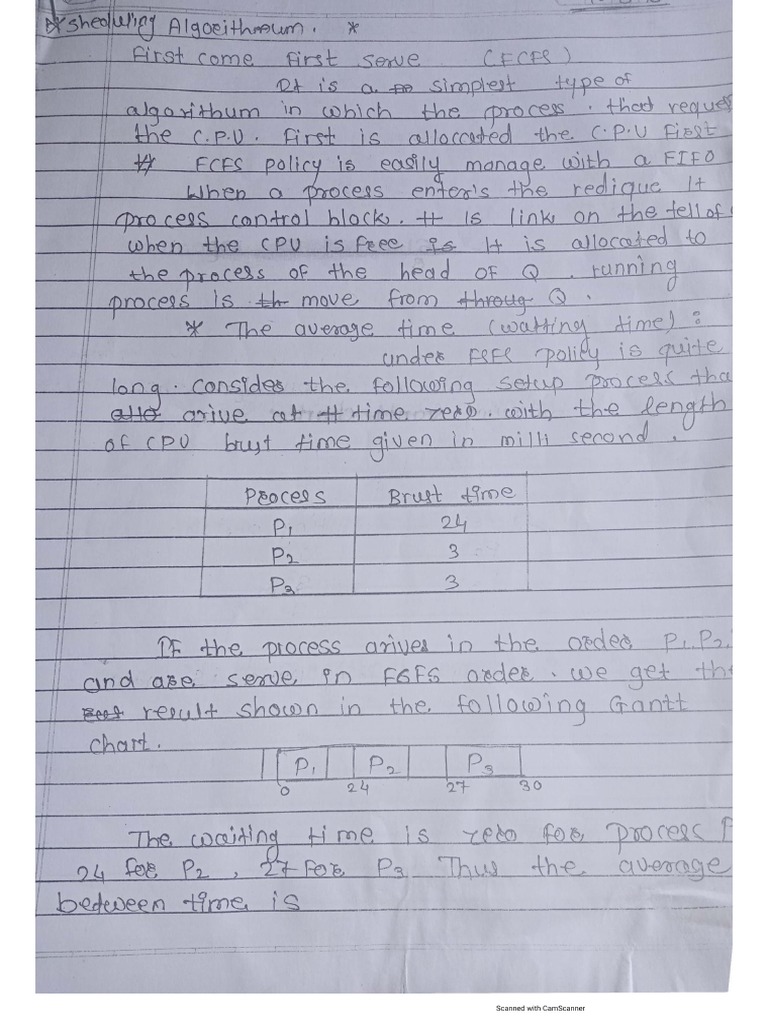 * Sheduling Algoeithmeum. *
First come first serve (FCFS)
It is a simplest type of
algorithum in which the process. that reques
the C.P.U. First is alloccated the C.P.U First
# FCFS policy is easily manage with a FIFO
When a process enter's the redique It
process control block. It is link on the tell of
when the CPU is free It is allocated to
the process of the head of Q. running
process is move from Q.
* The average time (watting time):
under FSFS policy is quite
long. consider the following setup process tha
arive at time zero. with the length
of CPU brust time given in milli second.
Process Brust time
P1 24
P2 3
P3 3
If the process arives in the order P1, P2,
and are serve in FSFS order. we get th
result shown in the following Gantt
chart.
P1 P2 P3
0 24 27 30
The waiting time is zero for process P
24 for P2, 27 for P3 Thus the average
bedween time is
Scanned with CamScanner